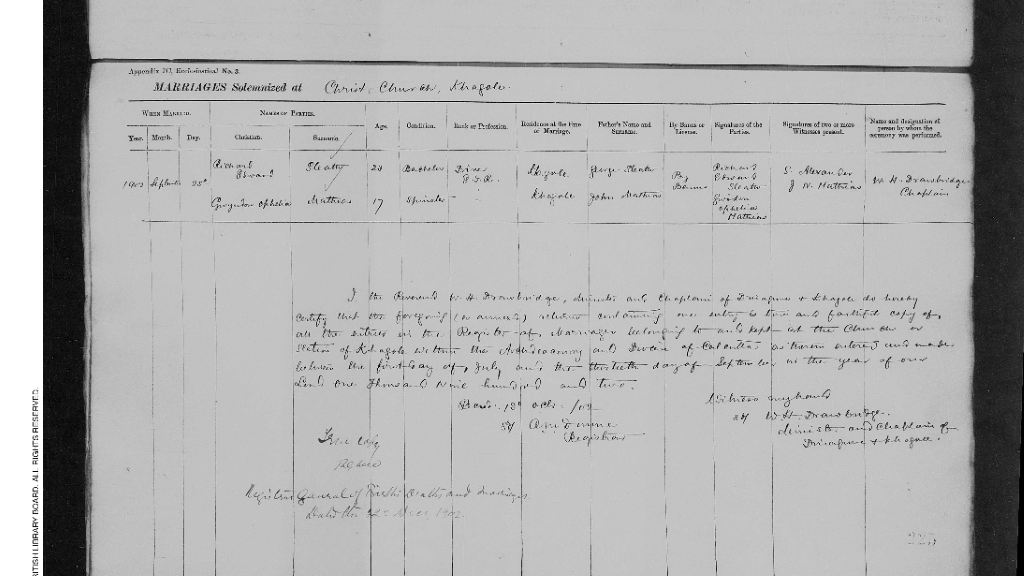 Appendix D, Ecclesiastical No. 3.
MARRIAGES Solemnized at Christ Church, Khagole.
WHEN MARRIED.
NAMES OF PARTIES.
Year.
Month.
Day.
Christian.
Surname.
Age.
Condition.
Rank or Profession.
Residence at the time of Marriage.
Father's Name and Surname.
By Banns or License.
Signatures of the Parties.
Signatures of two or more Witnesses present.
Name and designation of person by whom the ceremony was performed.
1902 September 25th
Richard Edward
Sleator
Bachelor
Khagole
George Sleator
By Banns
Richard Edward Sleator
S. Alexander
J. W. Mathias
W. H. Drawbridge
Chaplain
Ophelia
Mathias
17
Spinster
Khagole
John Mathias
Ophelia Mathias
I the Reverend W. H. Drawbridge, Minister and Chaplain of Dinapore & Khagole do hereby
certify that the foregoing (or annexed) returns containing one entry is true and faithful copy of
all the entries in the Register of Marriages belonging to and kept at the Church or
Station of Khagole within the Archdeaconry and Diocese of Calcutta as therein entered and made
between the first day of July, and the thirtieth day of September in the year of our
Lord one Thousand Nine hundred and two.
Witness my hand
Recd. 13th Oct. /02
Sd/ W. H. Drawbridge.
Sd/
Registrar
Minister and Chaplain of
Dinapore & Khagole.
True Copy
Registrar General of Births Deaths and Marriages.
Dated the Dec. 1902.
BRITISH LIBRARY BOARD. ALL RIGHTS RESERVED.